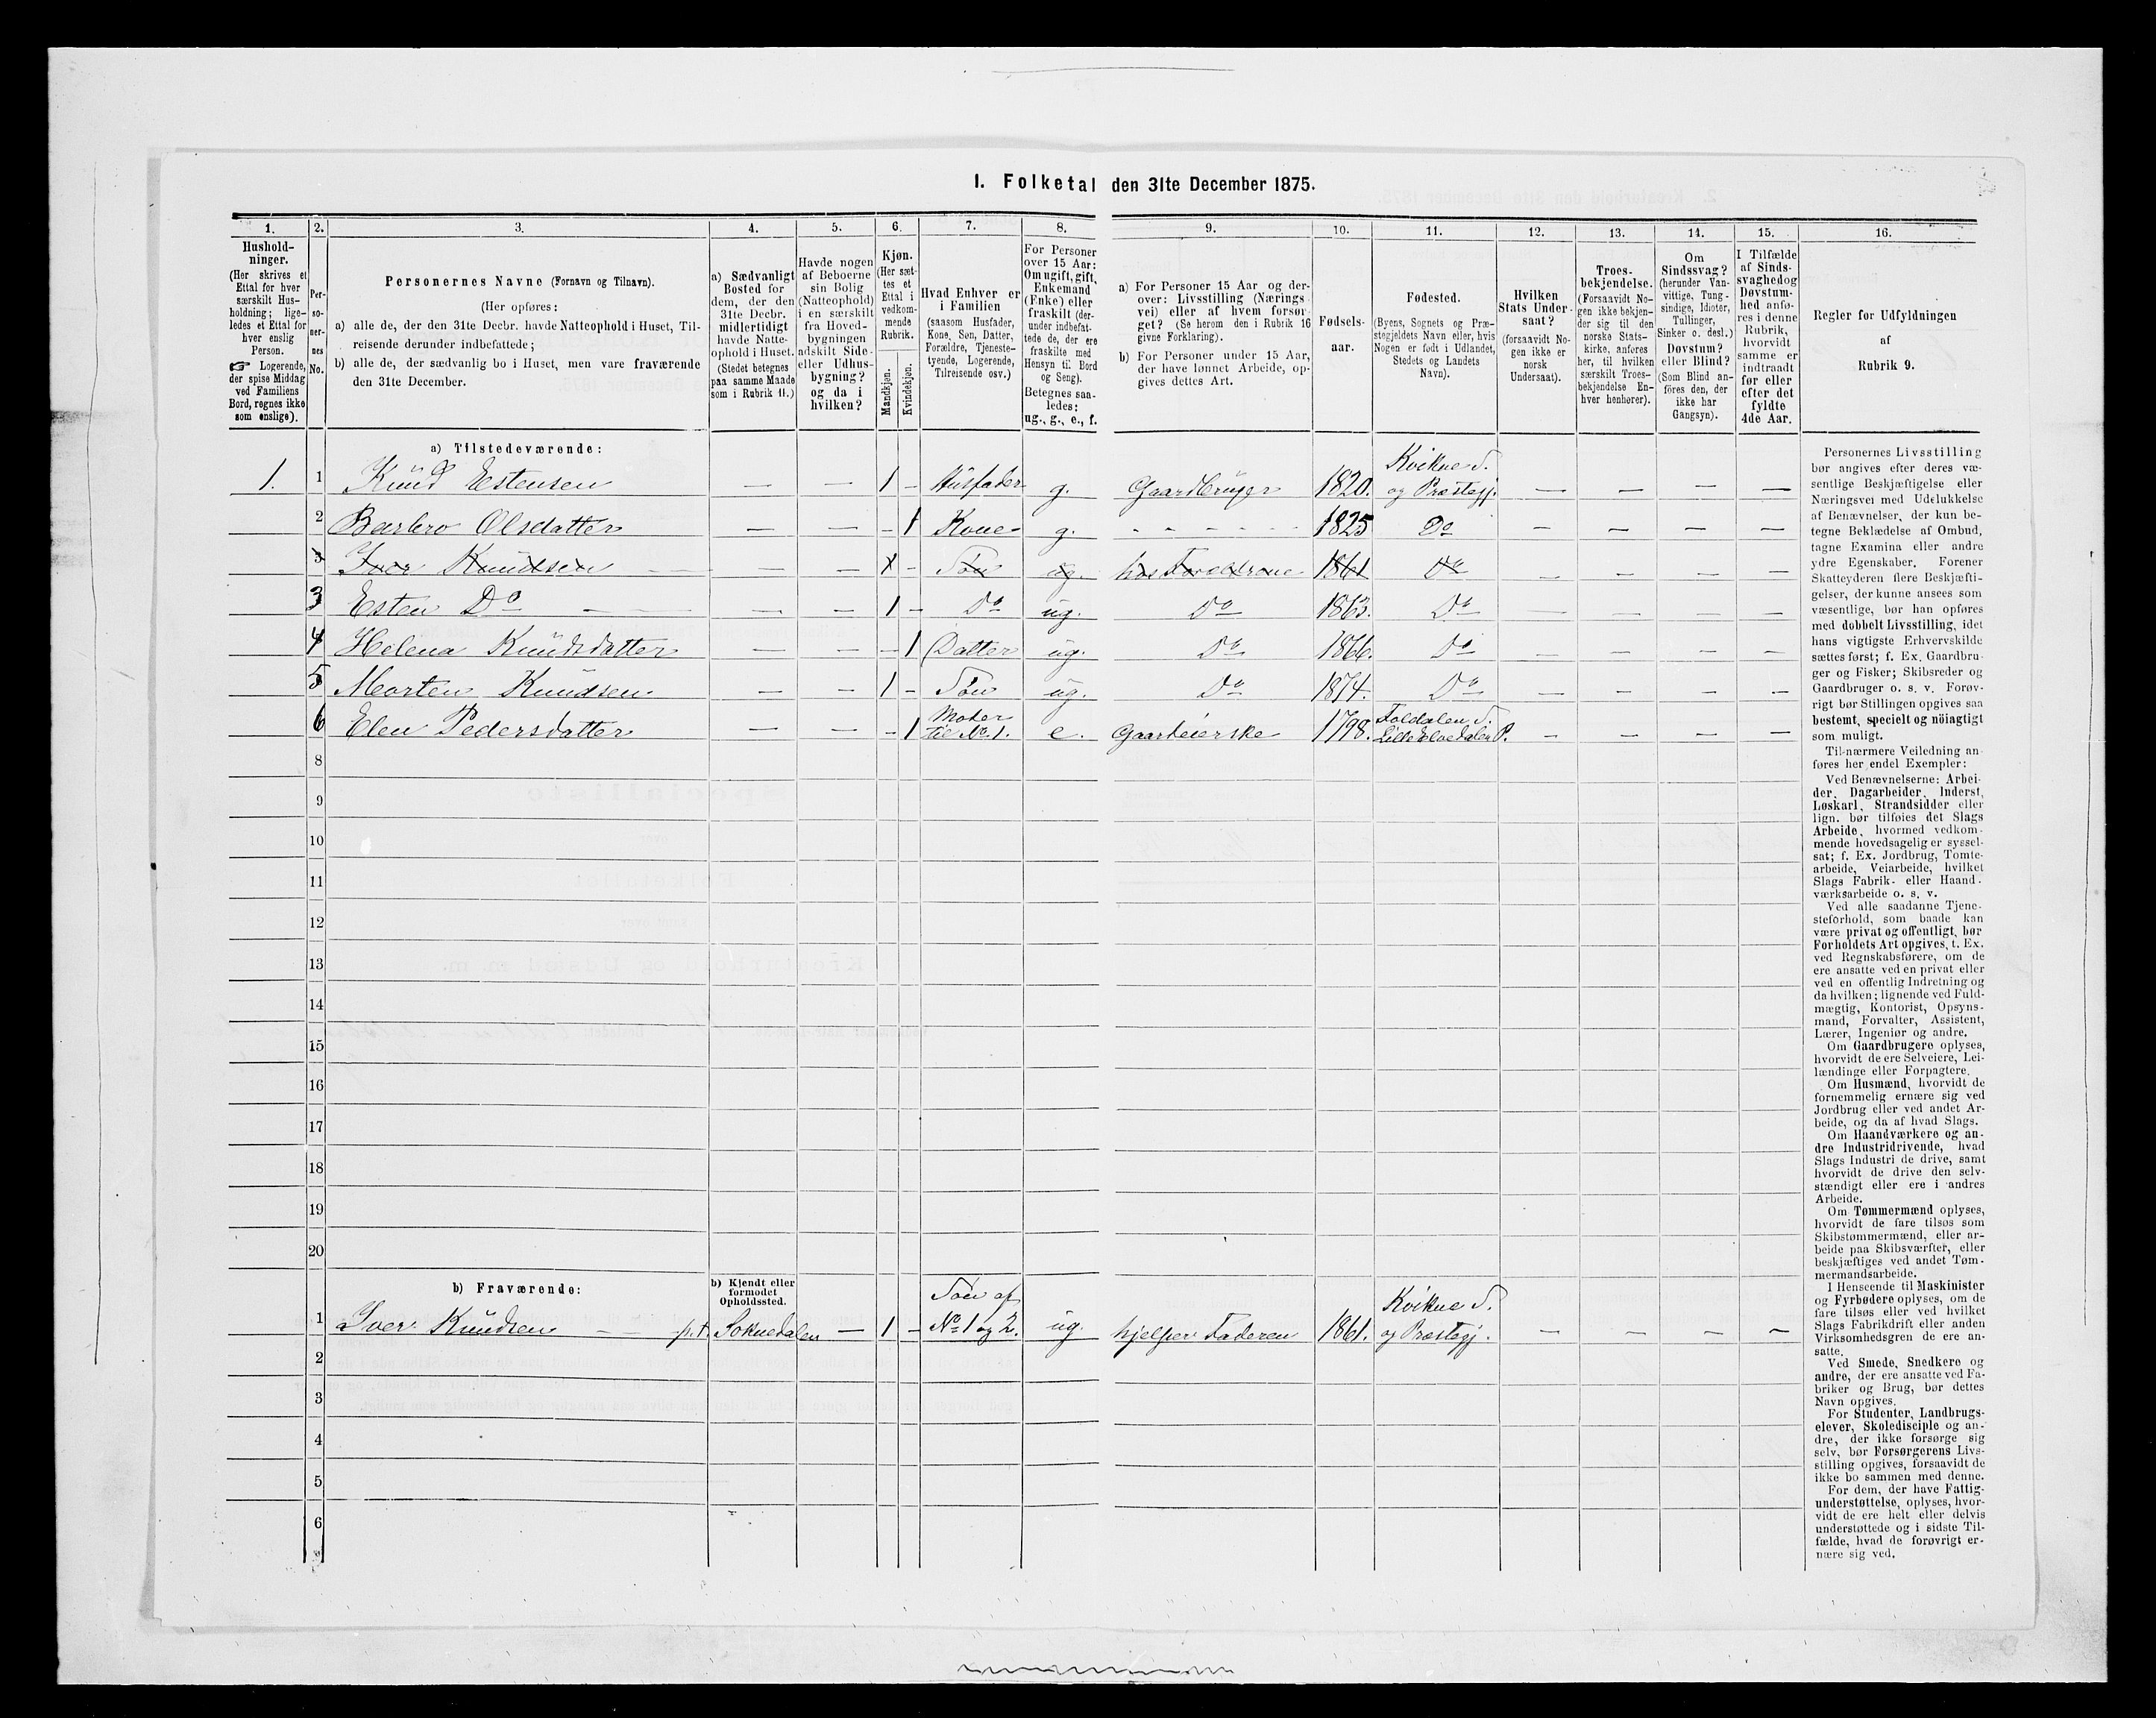 I. Folketal den 31te December 1875.
1. 2. 3. 4. 5. 6. 7. 8. 9. 10. 11. 12. 13. 14. 15. 16.
Hushold-
ninger.
(Her skrives et
Ettal for hver
særskilt Hus-
holdning; lige-
ledes et Ettal for
hver enslig
Person.
☞ Logerende,
der spise Middag
ved Familiens
Bord, regnes ikke
som enslige).
Per-
so-
ner-
nes
No.
Personernes Navne (Fornavn og Tilnavn).
(Her opføres:
a) alle de, der den 31te Decbr. havde Natteophold i Huset, Til-
reisende derunder indbefattede;
b) alle de, der sædvanlig bo i Huset, men vare fraværende
den 31te December.
a) Sædvanligt
Bosted for
dem, der den
31te Decbr.
midlertidigt
havde Natte-
ophold i Huset.
(Stedet betegnes
paa samme Maade
som i Rubrik 11.)
Havde nogen
af Beboerne
sin Bolig
(Natteophold)
i en særskilt
fra Hoved-
bygningen
adskilt Side-
eller Udhus-
bygning?
og da i
hvilken?
Kjøn.
(Her sæt-
tes et
Ettal i
vedkom-
mende
Rubrik.
Mandkjøn.
Kvindekjøn.
Hvad Enhver er
i Familien
(saasom Husfader,
Kone, Søn, Datter,
Forældre, Tjeneste-
tyende, Logerende,
Tilreisende osv.)
For Personer
over 15 Aar:
Om ugift, gift,
Enkemand
(Enke) eller
fraskilt (der-
under indbefat-
tede de, der ere
fraskilte med
Hensyn til Bord
og Seng).
Betegnes saa-
ledes:
ug., g., e., f.
a) For Personer 15 Aar og der-
over: Livsstilling (Nærings-
vei) eller af hvem forsør-
get? (Se herom den i Rubrik 16
givne Forklaring).
b) For Personer under 15 Aar,
der have lønnet Arbeide, op-
gives dettes Art.
Fødsels-
aar.
Fødested.
(Byens, Sognets og Præ-
stegjeldets Navn eller, hvis
Nogen er født i Udlandet,
Stedets og Landets
Navn).
Hvilken
Stats Under-
saat?
(forsaavidt No-
gen ikke er
norsk
Undersaat).
Troes-
bekjendelse.
(Forsaavidt No-
gen ikke bekjen-
der sig til den
norske Stats-
kirke, anføres
her, til hvilken
særskilt Troes-
bekjendelse En-
hver henhører).
Om
Sindssvag?
(herunder Van-
vittige, Tung-
sindige, Idioter,
Tullinger,
Sinker o. desl.)
Døvstum?
eller Blind?
(Som Blind an-
føres den, der
ikke har
Gangsyn).
I Tilfælde
af Sinds-
svaghed og
Døvstum-
hed anfø-
res i denne
Rubrik,
hvorvidt
samme er
indtraadt
før eller
efter det
fyldte
4de Aar.
Regler for Udfyldningen
af
Rubrik 9.
a) Tilstedeværende:
1. 1 Knud Estensen — — 1 - Husfader g. Gaardbruger 1820. Kvikne S. og Præstegj. — — — —
2 Barbro Olsdatter — — - 1 Kone g. - - - - - 1825 Do — — — —
3 Iver Knudsen 1 - Søn ug. hos Forældrene 1861 Do — — — —
3 Esten Do — — 1 - Do ug. Do 1863. Do — — — —
4 Helena Knudsdatter — — - 1 Datter ug. Do 1866. Do — — — —
5 Morten Knudsen — — 1 - Søn ug. Do 1874. Do — — — —
6 Elen Pedersdatter — — - 1 Moder til No. 1. e. Gaardeierske 1798. Foldalen S. Lille Elvedalen P. — — — —
8
9
10
11
12
13
14
15
16
17
18
19
20
b) Fraværende:
b) Kjendt eller
formodet
Opholdssted.
1 Iver Knudsen p.t. Soknedalen — 1 - Søn af No 1 og 2. ug. hjelper Faderen 1861. Kvikne S. og Præstegj. — — — —
2
3
4
5
6
Personernes Livsstilling
bør angives efter deres væ-
sentlige Beskjæftigelse eller
Næringsvei med Udelukkelse
af Benævnelser, der kun be-
tegne Beklædelse af Ombud,
tagne Examina eller andre
ydre Egenskaber. Forener
Skatteyderen flere Beskjæfti-
gelser, der kunne ansees som
væsentlige, bør han opføres
med dobbelt Livsstilling, idet
hans vigtigste Erhvervskilde
sættes først; f. Ex. Gaardbru-
ger og Fisker; Skibsreder og
Gaardbruger o. s. v. Forøv-
rigt bør Stillingen opgives saa
bestemt, specielt og nöiagtigt
som muligt.
Til nærmere Veiledning an-
føres her endel Exempler:
Ved Benævnelserne: Arbei-
der, Dagarbeider, Inderst,
Løskarl, Strandsidder eller
lign. bør tilføies det Slags
Arbeide, hvormed vedkom-
mende hovedsagelig er syssel-
sat; f. Ex. Jordbrug, Tomte-
arbeide, Veiarbeide, hvilket
Slags Fabrik- eller Haand-
værksarbeide o. s. v.
Ved alle saadanne Tjene-
steforhold, som baade kan
være privat og offentligt, bør
Forholdets Art opgives, t. Ex.
ved Regnskabsførere, om de
ere ansatte ved en privat eller
ved en offentlig Indretning og
da hvilken; lignende ved Fuld-
mægtig, Kontorist, Opsyns-
mand, Forvalter, Assistent,
Lærer, Ingeniør og andre.
Om Gaardbrugere oplyses,
hvorvidt de ere Selveiere, Lei-
lændinge eller Forpagtere.
Om Husmænd, hvorvidt de
fornemmelig ernære sig ved
Jordbrug eller ved andet Ar-
beide, og da af hvad Slags.
Om Haandværkere og an-
dre Industridrivende, hvad
Slags Industri de drive, samt
hvorvidt de drive den selv-
stændigt eller ere i andres
Arbeide.
Om Tømmermænd oplyses,
hvorvidt de fare tilsøs som
Skibstømmermænd, eller ar-
beide paa Skibsværfter, eller
beskjæftiges ved andet Tøm-
mermandsarbeide.
I Henseende til Maskinister
og Fyrbødere oplyses, om de
fare tilsøs eller ved hvilket
Slags Fabrikdrift eller anden
Virksomhedsgren de ere an-
satte.
Ved Smede, Snedkere og
andre, der ere ansatte ved Fa-
briker og Brug, bør dettes
Navn opgives.
For Studenter, Landbrugs-
elever, Skoledisciple og an-
dre, der ikke forsørge sig
selv, bør Forsørgerens Livs-
stilling opgives, forsaavidt de
ikke bo sammen med denne.
For dem, der have Fattig-
understøttelse, oplyses, hvor-
vidt de ere helt eller delvis
understøttede og i sidste Til-
fælde, hvad de forøvrigt er-
nære sig ved.